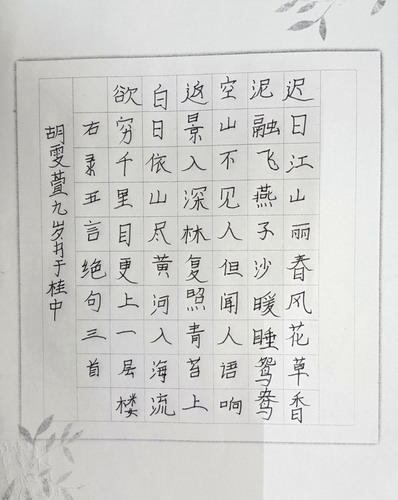 迟日江山丽春风花草香
泥融飞燕子沙暖睡鸳鸯
空山不见人但闻人语响
返景入深林复照青苔上
白日依山尽黄河入海流
欲穷千里目更上一层楼
右录五言绝句三首
胡雯萱九岁书于桂中